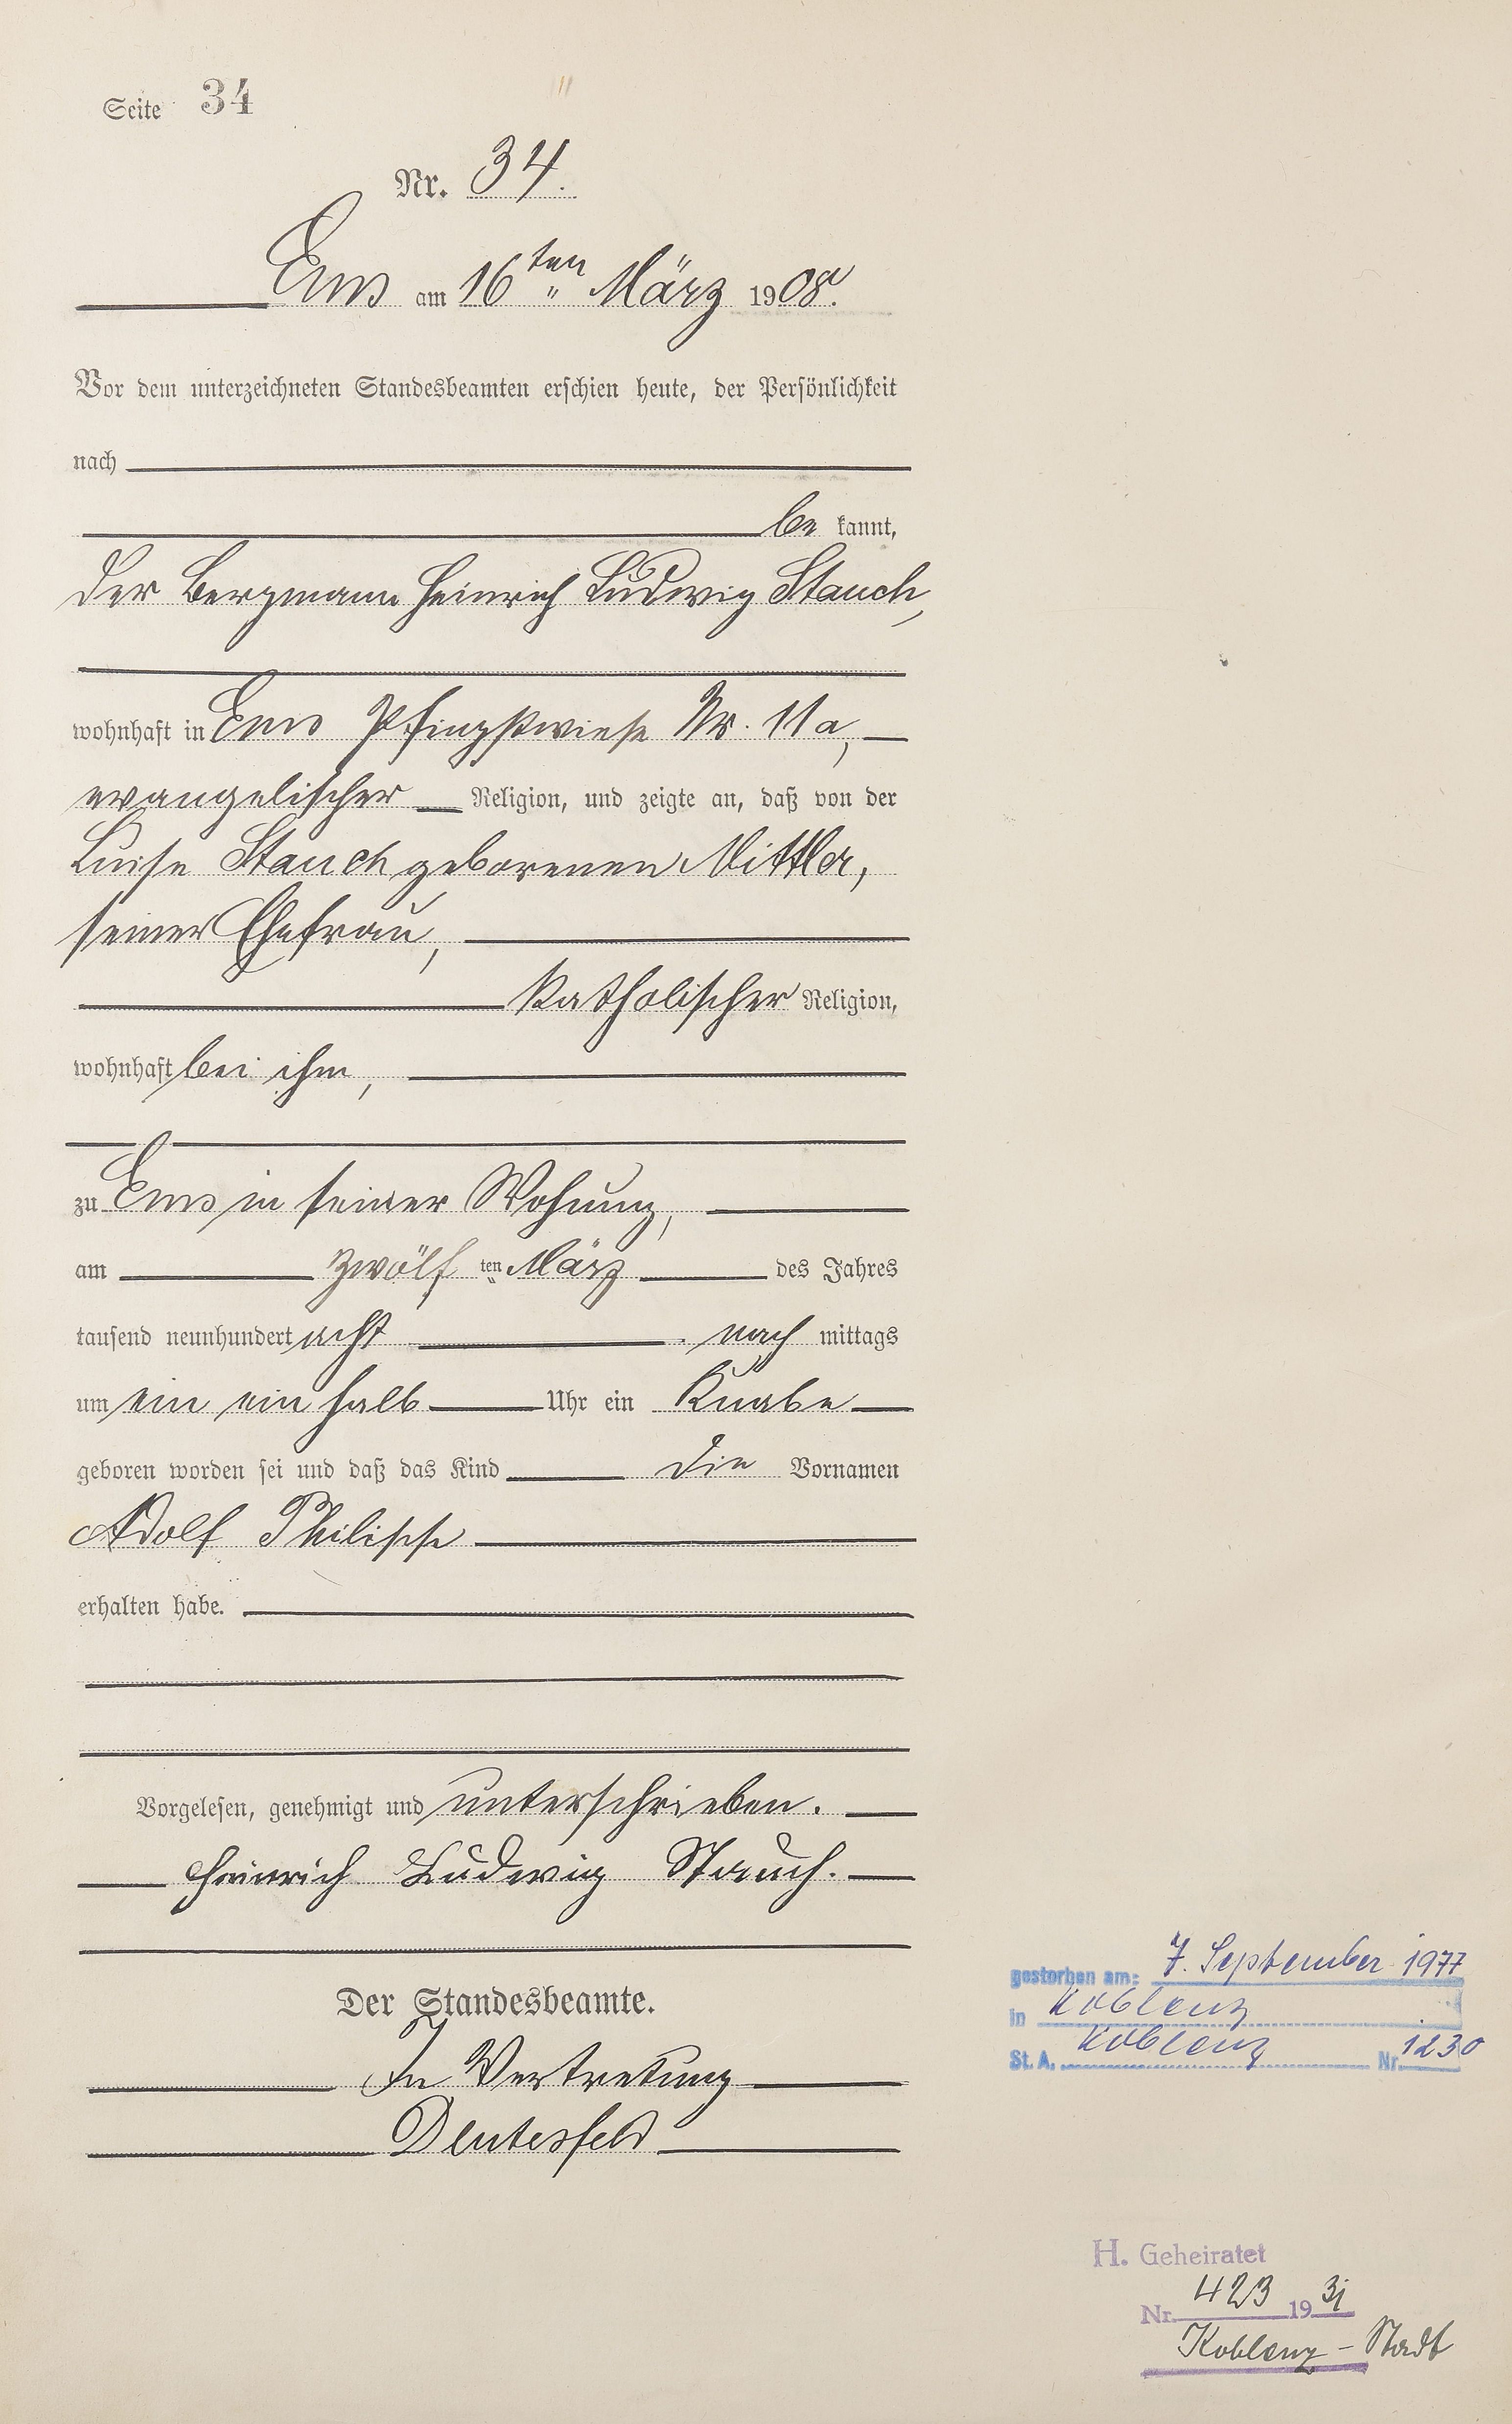 Seite 34
Nr. 34.
Ems am 16ten März 1908.
Vor dem unterzeichneten Standesbeamten erschien heute, der Persönlichkeit
nach
be kannt,
der Bergmann Heinrich Ludwig Stauch,
wohnhaft in Ems Pfingstwiese Nr. 11a,
evangelischer Religion, und zeigte an, daß von der
Luise Stauch geborenen Mittler,
seiner Ehefrau,
katholischer Religion,
wohnhaft bei ihm,
zu Ems in seiner Wohnung,
am zwölf ten März des Jahres
tausend neunhundert acht nach mittags
um ein ein halb Uhr ein Knabe
geboren worden sei und daß das Kind die Vornamen
Adolf Philipp
erhalten habe.
Vorgelesen, genehmigt und unterschrieben.
Heinrich Ludwig Stauch.
Der Standesbeamte.
In Vertretung
gestorben am: 7. September 1977
in Koblenz
St. A. Koblenz Nr. 1230
H. Geheiratet
Nr. 423 1931
Koblenz - Stadt